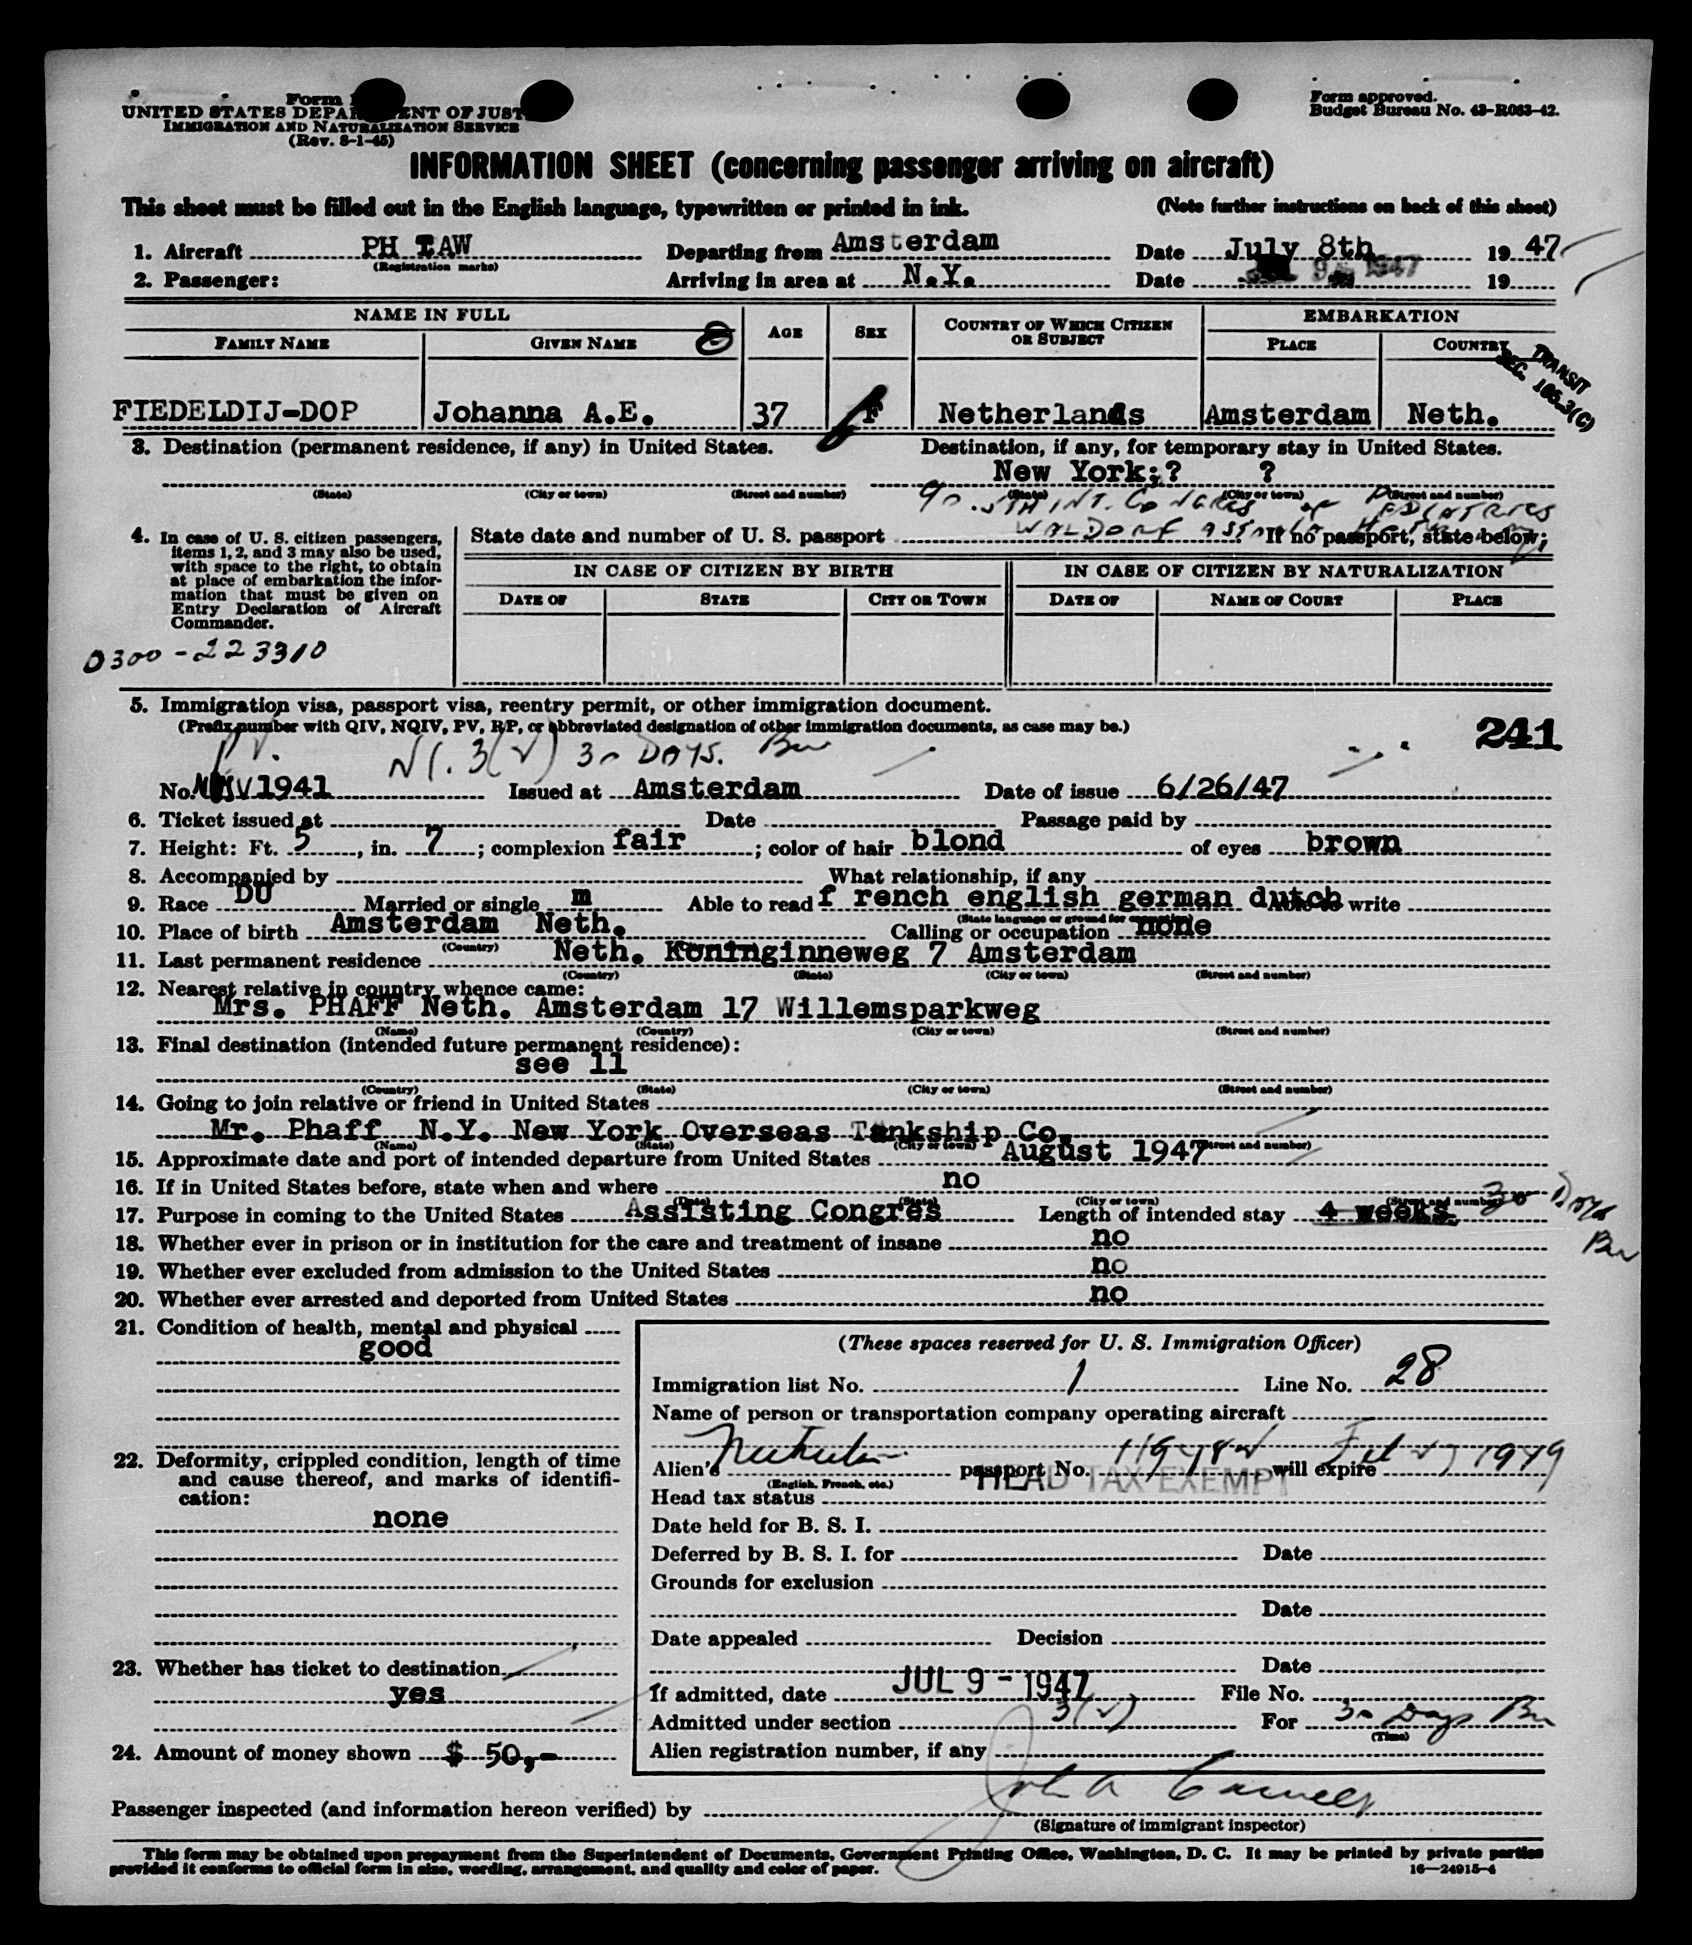 Form
UNITED STATES DEPARTMENT OF JUST
IMMIGRATION AND NATURALIZATION SERVICE
(Rev. 8-1-45)
Form approved.
Budget Bureau No. 43-R083-42.
INFORMATION SHEET (concerning passenger arriving on aircraft)
This sheet must be filled out in the English language, typewritten or printed in ink. (Note further instructions on back of this sheet)
1. Aircraft PH TAW Departing from Amsterdam Date July 8th 19 47
(Registration marks)
2. Passenger: Arriving in area at N.Y. Date 9 1947 19
NAME IN FULL AGE SEX COUNTRY OF WHICH CITIZEN OR SUBJECT EMBARKATION
FAMILY NAME GIVEN NAME PLACE COUNTRY
TRANSIT
SEC. 105.3(C)
FIEDELDIJ-DOP Johanna A.E. 37 F Netherlands Amsterdam Neth.
3. Destination (permanent residence, if any) in United States. Destination, if any, for temporary stay in United States.
New York;? ?
(State) (City or town) (Street and number) (State) (City or town) (Street and number)
INT. CONGRES OF
WALDORF
4. In case of U. S. citizen passengers, items 1, 2, and 3 may also be used, with space to the right, to obtain at place of embarkation the information that must be given on Entry Declaration of Aircraft Commander.
State date and number of U. S. passport If no passport, state below;
IN CASE OF CITIZEN BY BIRTH IN CASE OF CITIZEN BY NATURALIZATION
DATE OF STATE CITY OR TOWN DATE OF NAME OF COURT PLACE
0300-223310
5. Immigration visa, passport visa, reentry permit, or other immigration document.
(Prefix number with QIV, NQIV, PV, RP, or abbreviated designation of other immigration documents, as case may be.)
241
PV. 3(2) 30 DAYS.
No. 1941 Issued at Amsterdam Date of issue 6/26/47
6. Ticket issued at Date Passage paid by
7. Height: Ft. 5, in. 7; complexion fair; color of hair blond of eyes brown
8. Accompanied by What relationship, if any
9. Race DU Married or single m Able to read f rench english german dutch Able to write
(State language or ground for exemption)
10. Place of birth Amsterdam Neth. Calling or occupation none
(Country)
11. Last permanent residence Neth. Koninginneweg 7 Amsterdam
(Country) (State) (City or town) (Street and number)
12. Nearest relative in country whence came:
Mrs. PHAFF Neth. Amsterdam 17 Willemsparkweg
(Name) (Country) (City or town) (Street and number)
13. Final destination (intended future permanent residence):
see 11
(Country) (State) (City or town) (Street and number)
14. Going to join relative or friend in United States
Mr. Phaff N.Y. New York Overseas Tankship Co.
(Name) (State) (City or town) (Street and number)
15. Approximate date and port of intended departure from United States August 1947
16. If in United States before, state when and where no
(Date) (State) (City or town) (Street and number)
17. Purpose in coming to the United States Assisting Congres Length of intended stay 4 weeks. 30 Days
18. Whether ever in prison or in institution for the care and treatment of insane no
19. Whether ever excluded from admission to the United States no
20. Whether ever arrested and deported from United States no
21. Condition of health, mental and physical
good
22. Deformity, crippled condition, length of time and cause thereof, and marks of identification:
none
23. Whether has ticket to destination
yes
24. Amount of money shown $ 50,-
(These spaces reserved for U. S. Immigration Officer)
Immigration list No. 1 Line No. 28
Name of person or transportation company operating aircraft
Alien's passport No. will expire 1949
(English, French, etc.)
HEAD TAX EXEMPT
Head tax status
Date held for B. S. I.
Deferred by B. S. I. for Date
Grounds for exclusion
Date
Date appealed Decision
Date
If admitted, date JUL 9 - 1947 File No.
Admitted under section 3(2) For 30 Days
(Time)
Alien registration number, if any
Passenger inspected (and information hereon verified) by John A
(Signature of immigrant inspector)
This form may be obtained upon prepayment from the Superintendent of Documents, Government Printing Office, Washington, D. C. It may be printed by private parties
provided it conforms to official form in size, wording, arrangement, and quality and color of paper. 16—24915-4